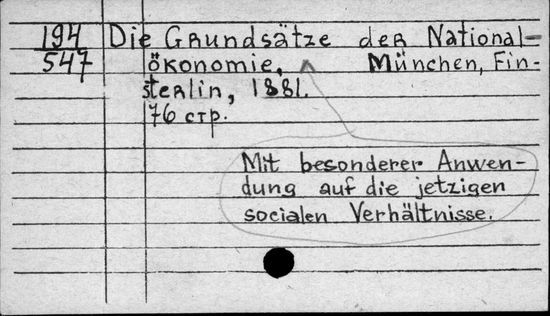 194 Die Grundsätze der National-
547 ökonomie, München, Fin-
sterlin, 1881.
76 стр.
Mit besonderer Anwen-
dung auf die jetzigen
socialen Verhältnisse.